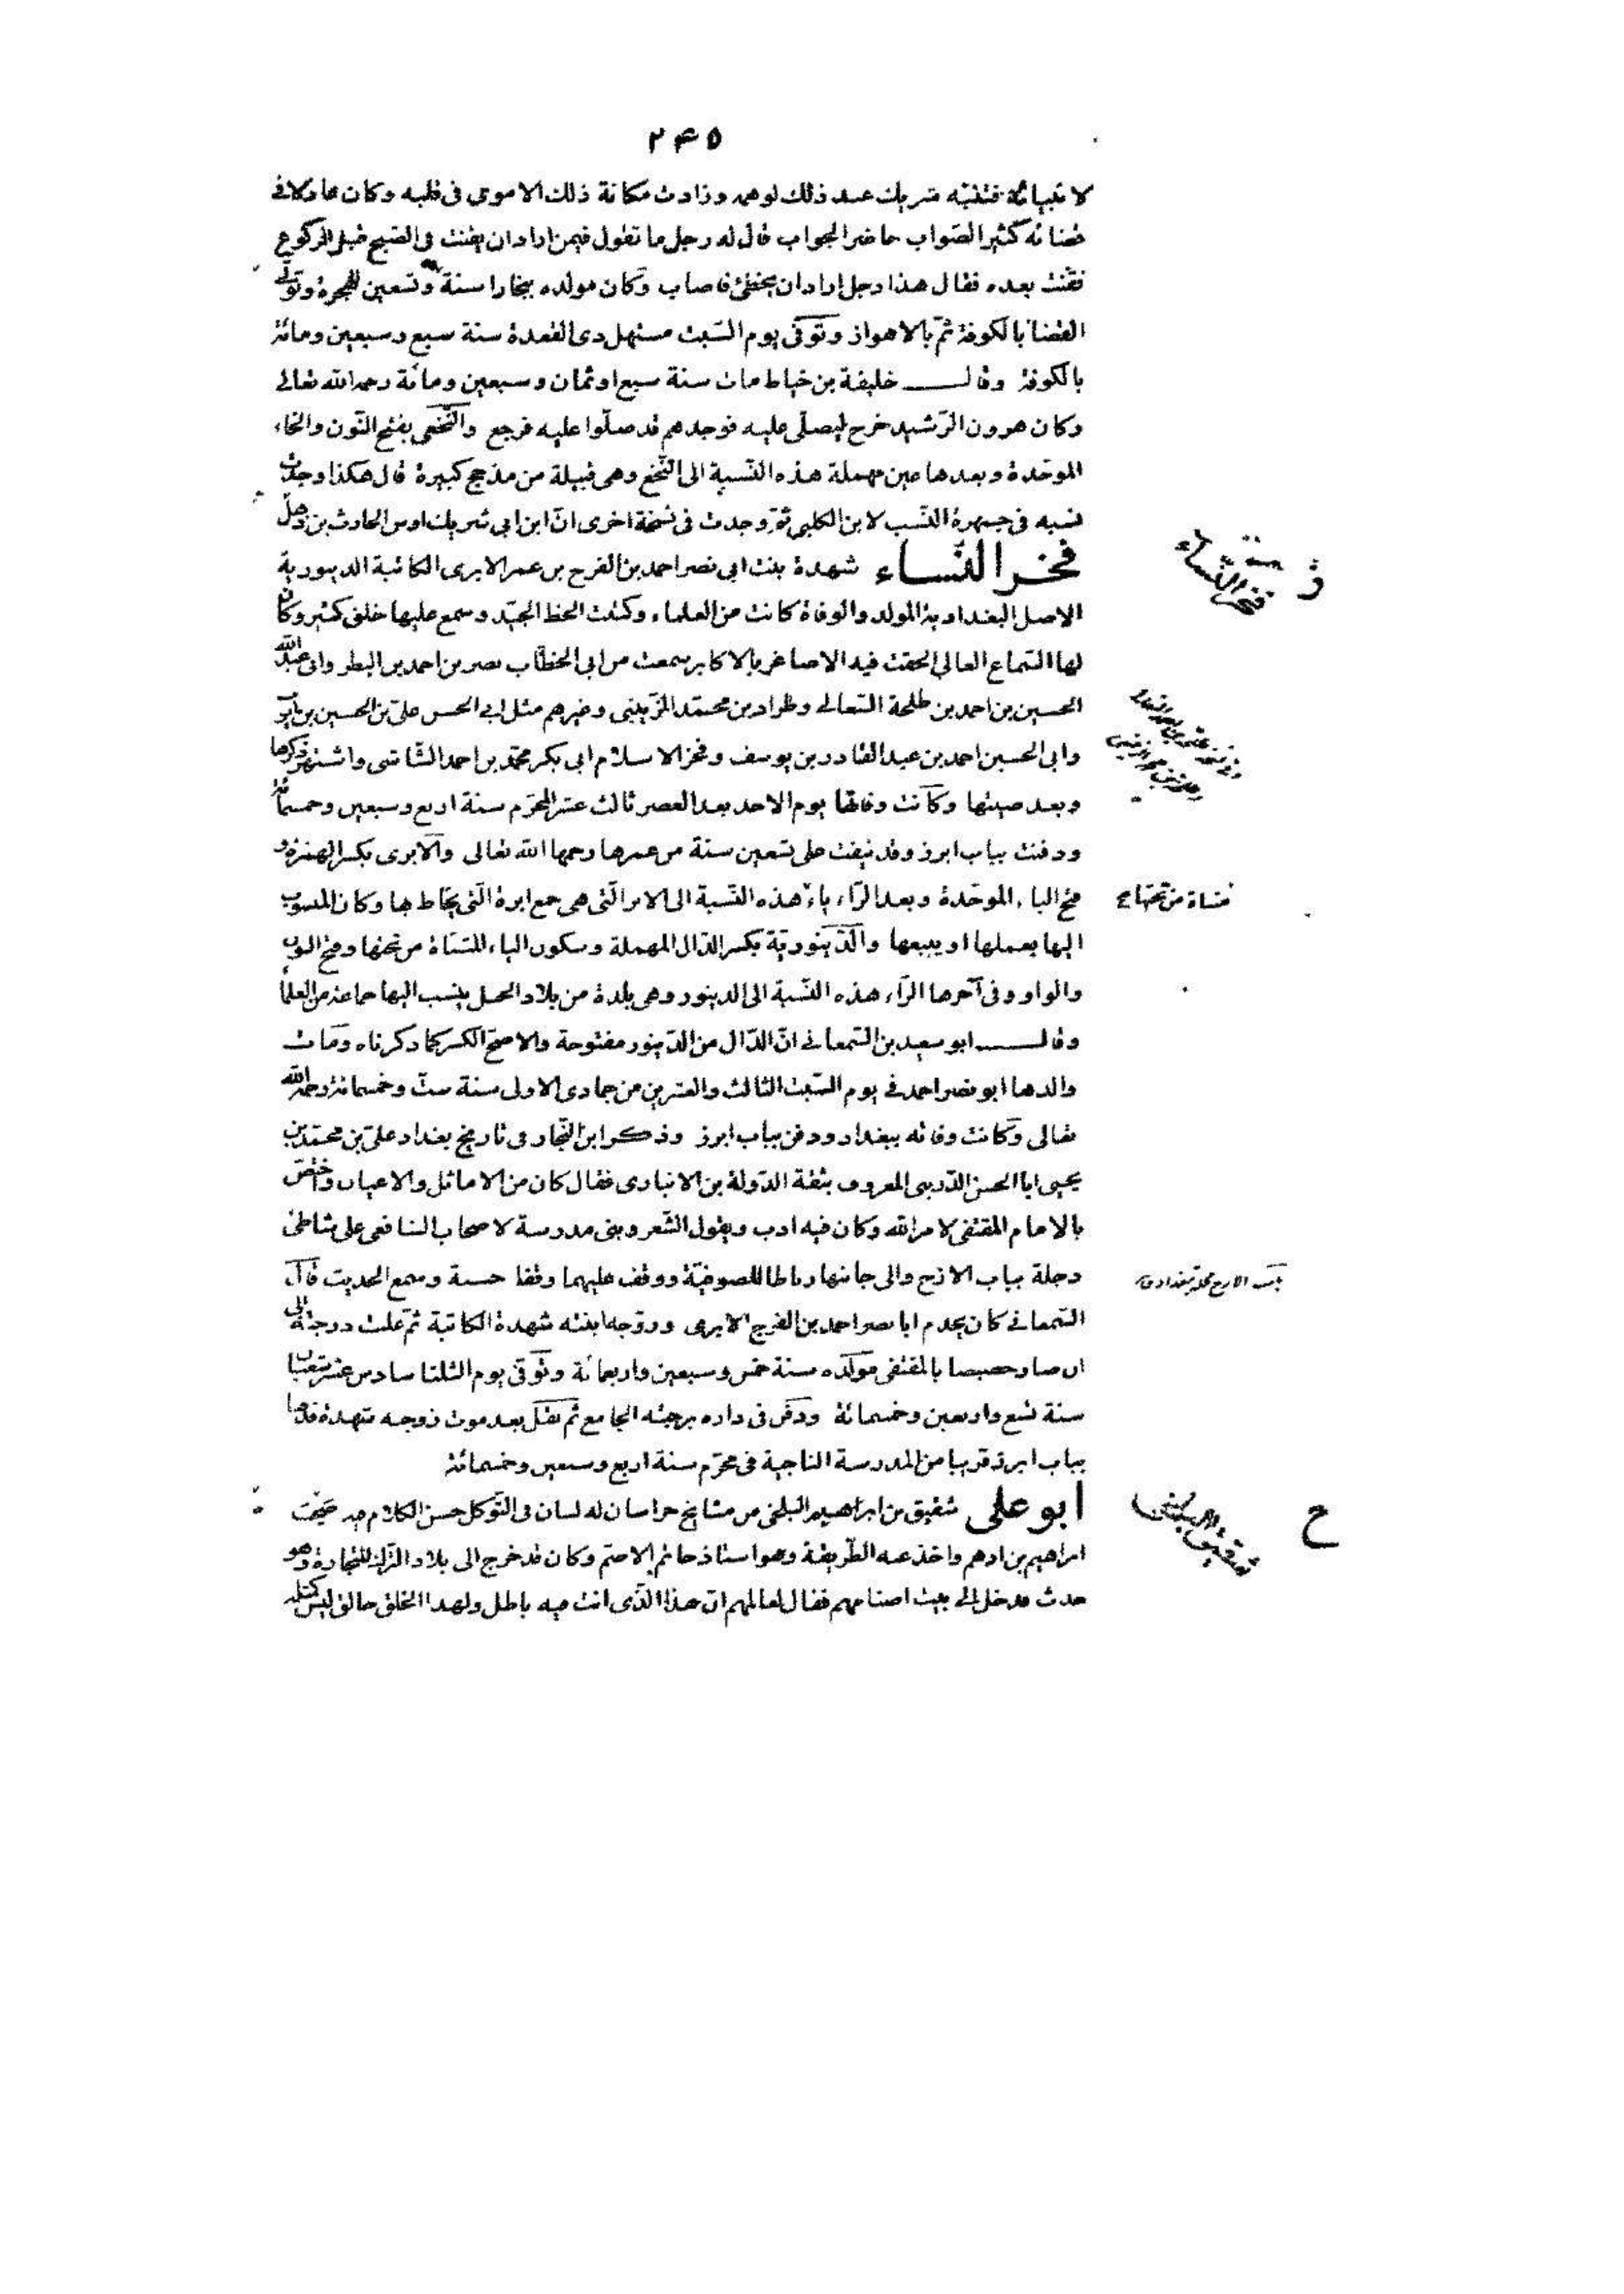 ٢٤٥
لانبيائه فتنبه شريك عند ذلك لوهمه وزادت مكانة ذلك الاموى فى قلبه وكان عادلا فى
قضائه كثير الصواب حاضر الجواب قال له رجل ما تقول فيمن اراد ان يقنت فى الصبح قبل الركوع
فقنت بعده فقال هذا رجل اراد ان يخطئ فاصاب وكان مولده ببخارا سنة وتسعين للهجرة وتولى
القضا بالكوفة ثمّ بالاهواز وتوفى يوم السّبت مستهل ذى القعدة سنة سبع وسبعين ومائة
بالكوفة وقال خليفة بن خياط مات سنة سبع او ثمان وسبعين ومائة رحمه الله تعالى
وكان هرون الرّشيد خرج ليصلّى عليه فوجدهم قد صلّوا عليه فرجع والنّخعى بفتح النّون والخاء
الموحّدة وبعدها عين مهملة هذه النّسبة الى النّخع وهى قبيلة من مذحج كبيرة قال هكذا وجدت
نسبه فى جمهرة النّسب لابن الكلبى ثمّ وجدت فى نسخة اخرى انّ ابن ابى شريك اوس الحارث بن ذهل
فخر النّساء شهدة بنت ابى نصر احمد بن الفرج بن عمر الابرى الكاتبة الدينورية
الاصل البغدادية المولد والوفاة كانت من العلماء وكتبت الخط الجيّد وسمع عليها خلق كثير وكان
لها السّماع العالى الحقت فيه الاصاغر بالاكابر سمعت من ابى الخطّاب نصر بن احمد بن البطر وابى عبد الله
الحسين بن احمد بن طلحة النّعالى وطراد بن محمّد الزّينبى وغيرهم مثل ابى الحسن علىّ بن الحسين بن ايّوب
وابى الحسين احمد بن عبد القادر بن يوسف وفخر الاسلام ابى بكر محمّد بن احمد الشّاشى واشتهر ذكرها
وبعد صيتها وكانت وفاتها يوم الاحد بعد العصر ثالث عشر المحرّم سنة اربع وسبعين وخمسمائة
ودفنت بباب ابرز وقد نيفت على تسعين سنة من عمرها رحمها الله تعالى والابرى بكسر الهمزة و
فتح الباء الموحّدة وبعد الرّاء ياء هذه النّسبة الى الابر الّتى هى جمع ابرة الّتى يخاط بها وكان المنسوب
اليها يعملها او يبيعها والدّينوريّة بكسر الدّال المهملة وسكون الياء المثنّاة من تحتها وفتح النون
والواو وفى آخرها الرّاء هذه النّسبة الى الدينور وهى بلدة من بلاد الجبل ينسب اليها جماعة من العلما
وقال ابو سعيد بن السّمعانى انّ الدّال من الدّينور مفتوحة والاصحّ الكسر كما ذكرناه ومات
والدها ابو نصر احمد فى يوم السّبت الثالث والعشرين من جمادى الاولى سنة ستّ وخمسمائة رحمه الله
تعالى وكانت وفاته ببغداد ودفن بباب ابرز وذكر ابن النّجار فى تاريخ بغداد علىّ بن محمّد بن
يحيى ابا الحسن الدّرينى المعروف بثقة الدّولة بن الانبارى فقال كان من الاماثل والاعيان واختصّ
بالامام المقتفى لامر الله وكان فيه ادب ويقول الشّعر وبنى مدرسة لاصحاب الشافعى على شاطئ
دجلة بباب الازج والى جانبها رباطا للصوفيّة ووقف عليهما وقفا حسنة وسمع الحديث قال
السّمعانى كان يخدم ابا نصر احمد بن الفرج الابرى وزوّجه ابنته شهدة الكاتبة ثمّ علت درجته الى
ان صار خصيصا بالمقتفى مولده سنة خمس وسبعين واربعمائة وتوفى يوم الثلثا سادس عشر شعبان
سنة تسع واربعين وخمسمائة ودفن فى داره برحبة الجامع ثم نقل بعد موت زوجه شهدة فدفنا
بباب ابرز قريبا من المدرسة التاجية فى محرّم سنة اربع وسبعين وخمسمائة
أبو على شقيق بن ابراهيم البلخى من مشايخ خراسان له لسان فى التّوكل حسن الكلام فيه صحب
ابراهيم بن ادهم واخذ عنه الطّريقة وهو استاذ حاتم الاصمّ وكان قد خرج الى بلاد التّرك للتّجارة وهو
حدث فدخل الى بيت اصنامهم فقال لعالمهم انّ هذا الّذى انت فيه باطل ولهذا الخلق خالق ليس كمثله
ف
فخر النّساء
مثناة من تحتها
باب الازج محلة ببغداد
ح
شقيق البلخى